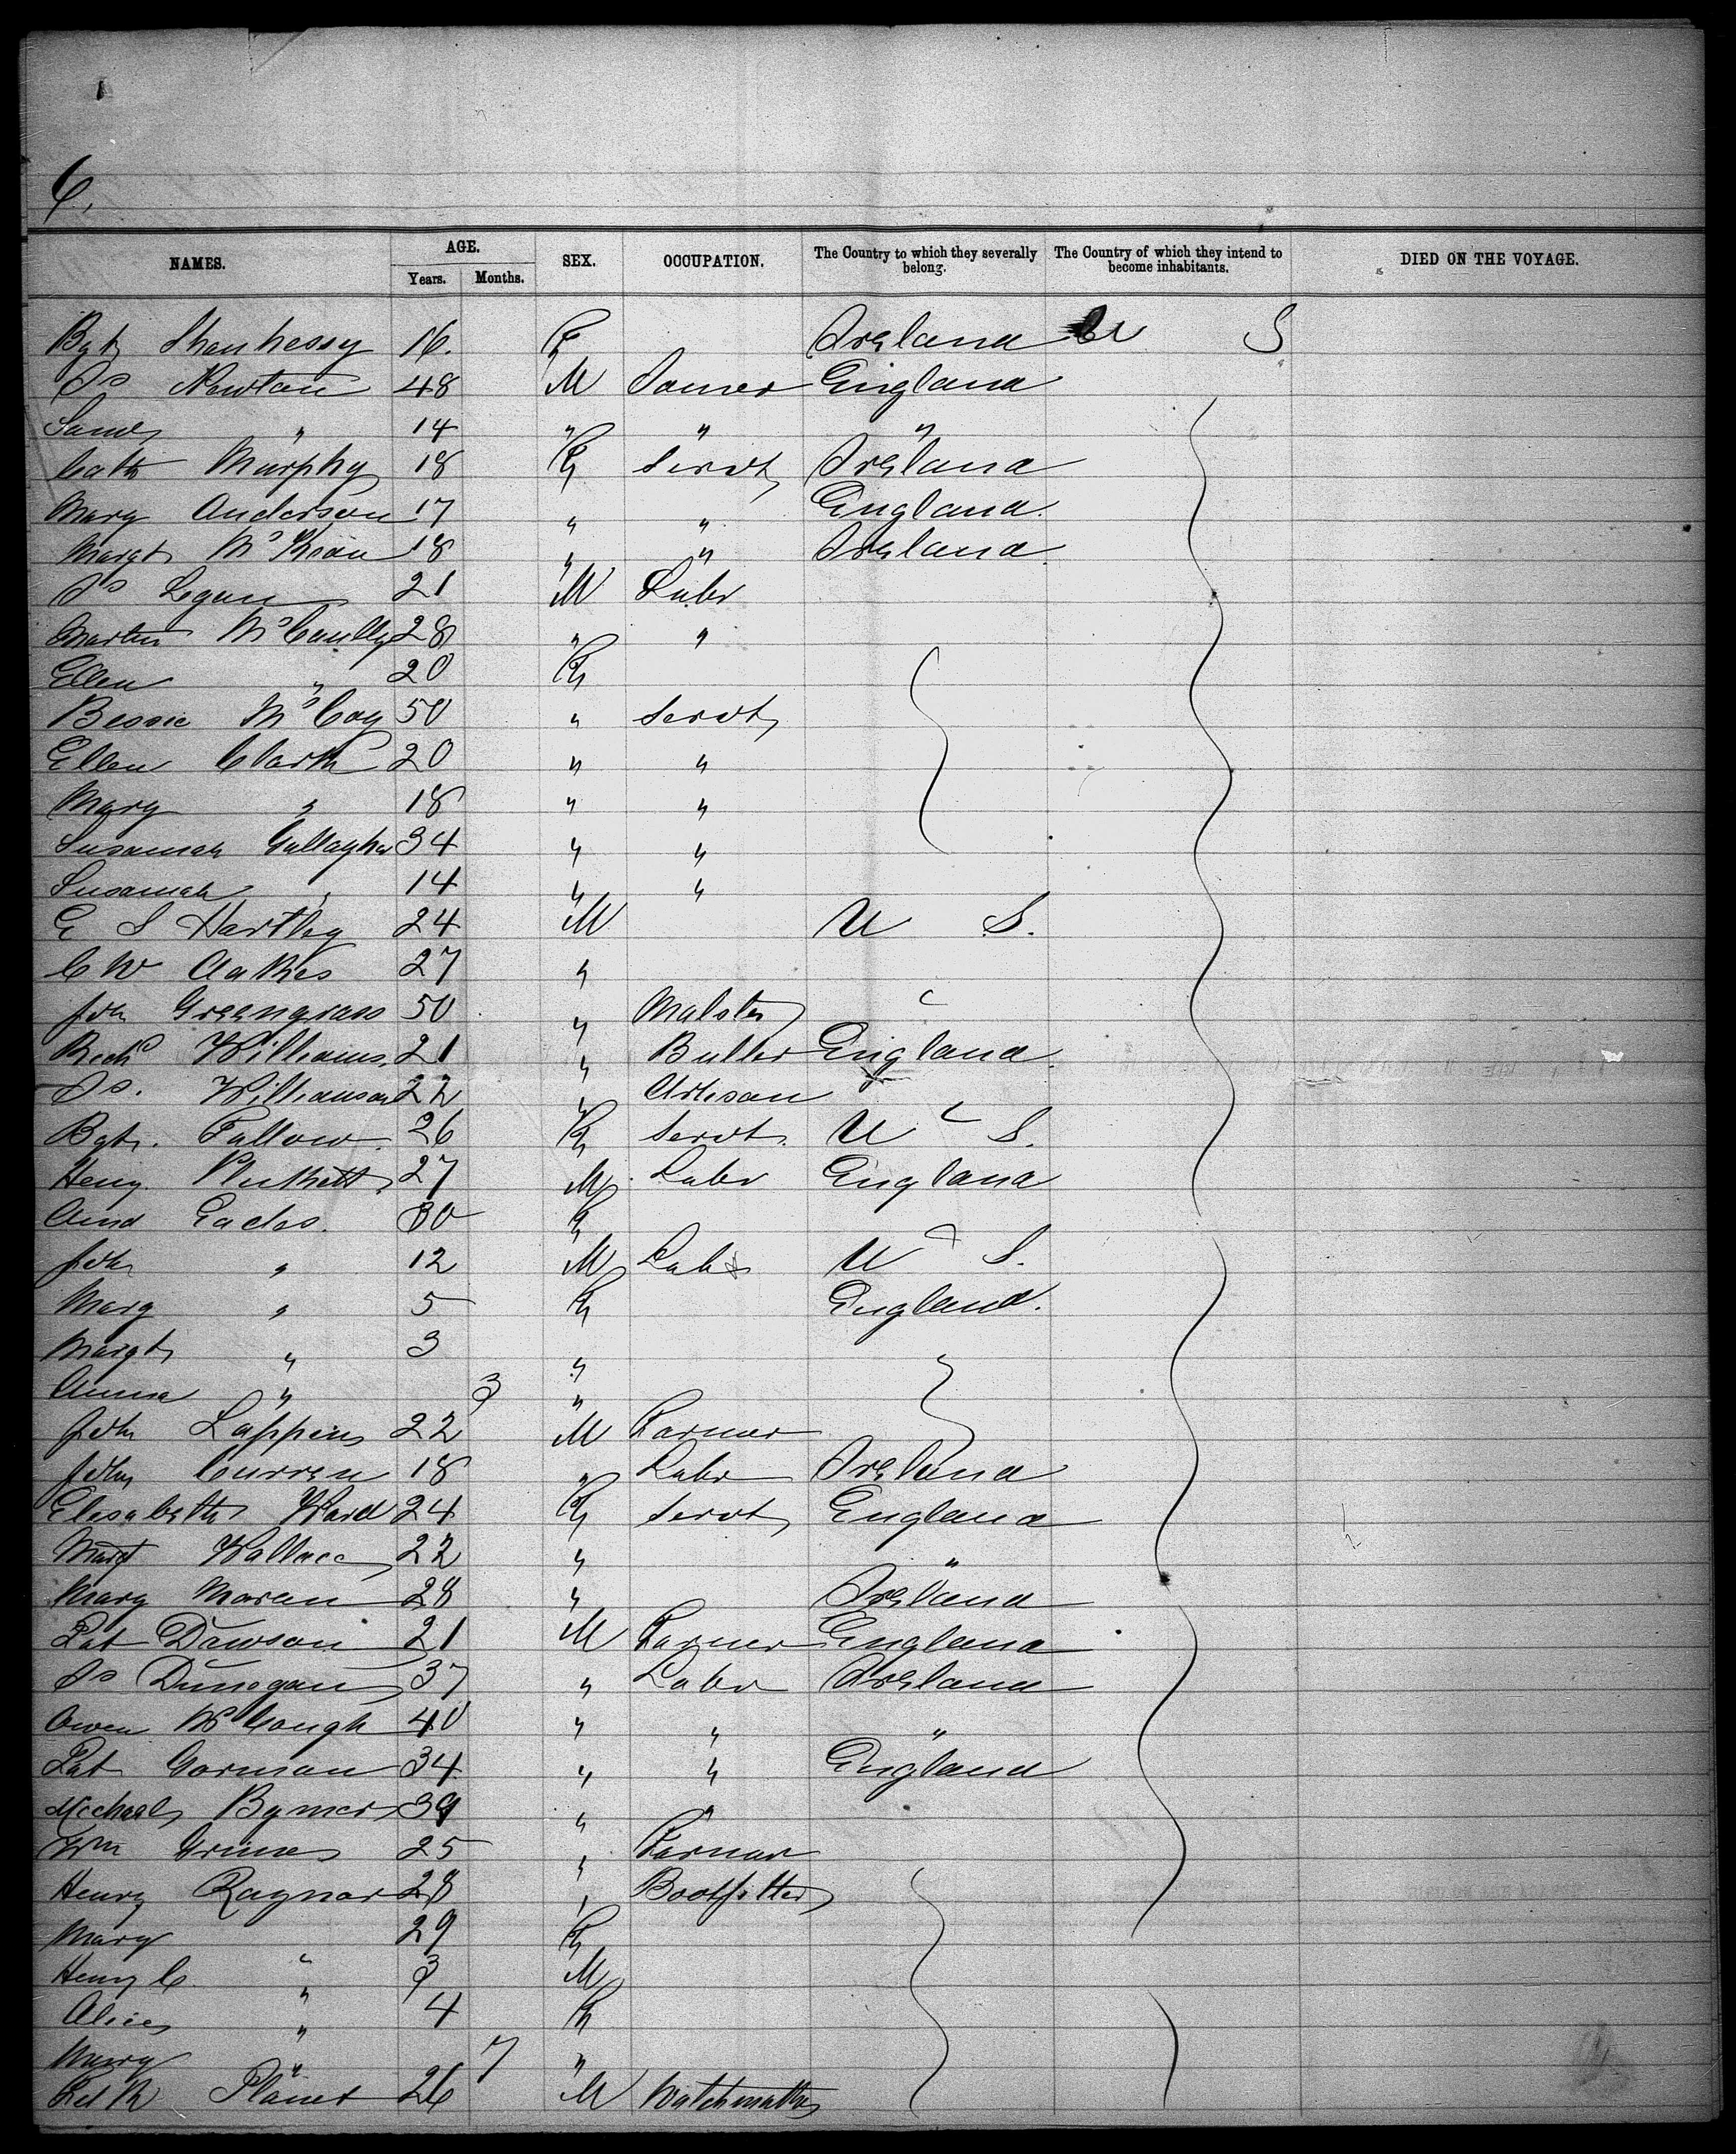 6.
NAMES. AGE. SEX. OCCUPATION. The Country to which they severally belong. The Country of which they intend to become inhabitants. DIED ON THE VOYAGE.
Years. Months.
Bgt Shauhessy 16. F Ireland U S
Js Newton 48 M England
Saml " 14 " " "
Cath Murphy 18 F Servt Ireland
Mary Anderson 17 " " England.
Margt McKean 18 " " Ireland
Js Logan 21 M Labr
Martin McCaully 28 " "
Ellen " 20 F
Bessie McCoy 50 " Servt
Ellen Clark 20 " "
Mary " 18 " "
Susannah Gallagher 34 " "
Susannah " 14 " "
E S Hartley 24 M U S.
C W Oakes 27 "
Jno Greengrass 50 " Malster
Richd Williams. 21 " Butler England
Js. Williamson 22 " Artisan
Bgt. Fallow 26 F Servt. U S.
Heny. Plunkett 27 M Labr England
Amd Eades. 30 F
Jno " 12 M Labr U S.
Mary " 5 F England.
Margt " 3 "
Anna " 3 "
Jno Lappin 22 M Farmer
Jno Curren 18 " Labr Ireland
Elisabeth Ward 24 F Servt England
Margt Wallace 22 " "
Mary Moran 28 " Ireland
Pat Dawson 21 M Farmer England
Js Dunegan 37 " Labr Ireland
Owen McCough 40 " " "
Pat Gorman 34 " " England
Micheal Bymer 39 " "
Wm Grimes 25 " Farmer
Henry Raynor 28 " Bootfitter
Mary " 29 F
Heny C " 3 M
Alice " 4 F
Mary " 7 "
Planet 26 M Watchmaker